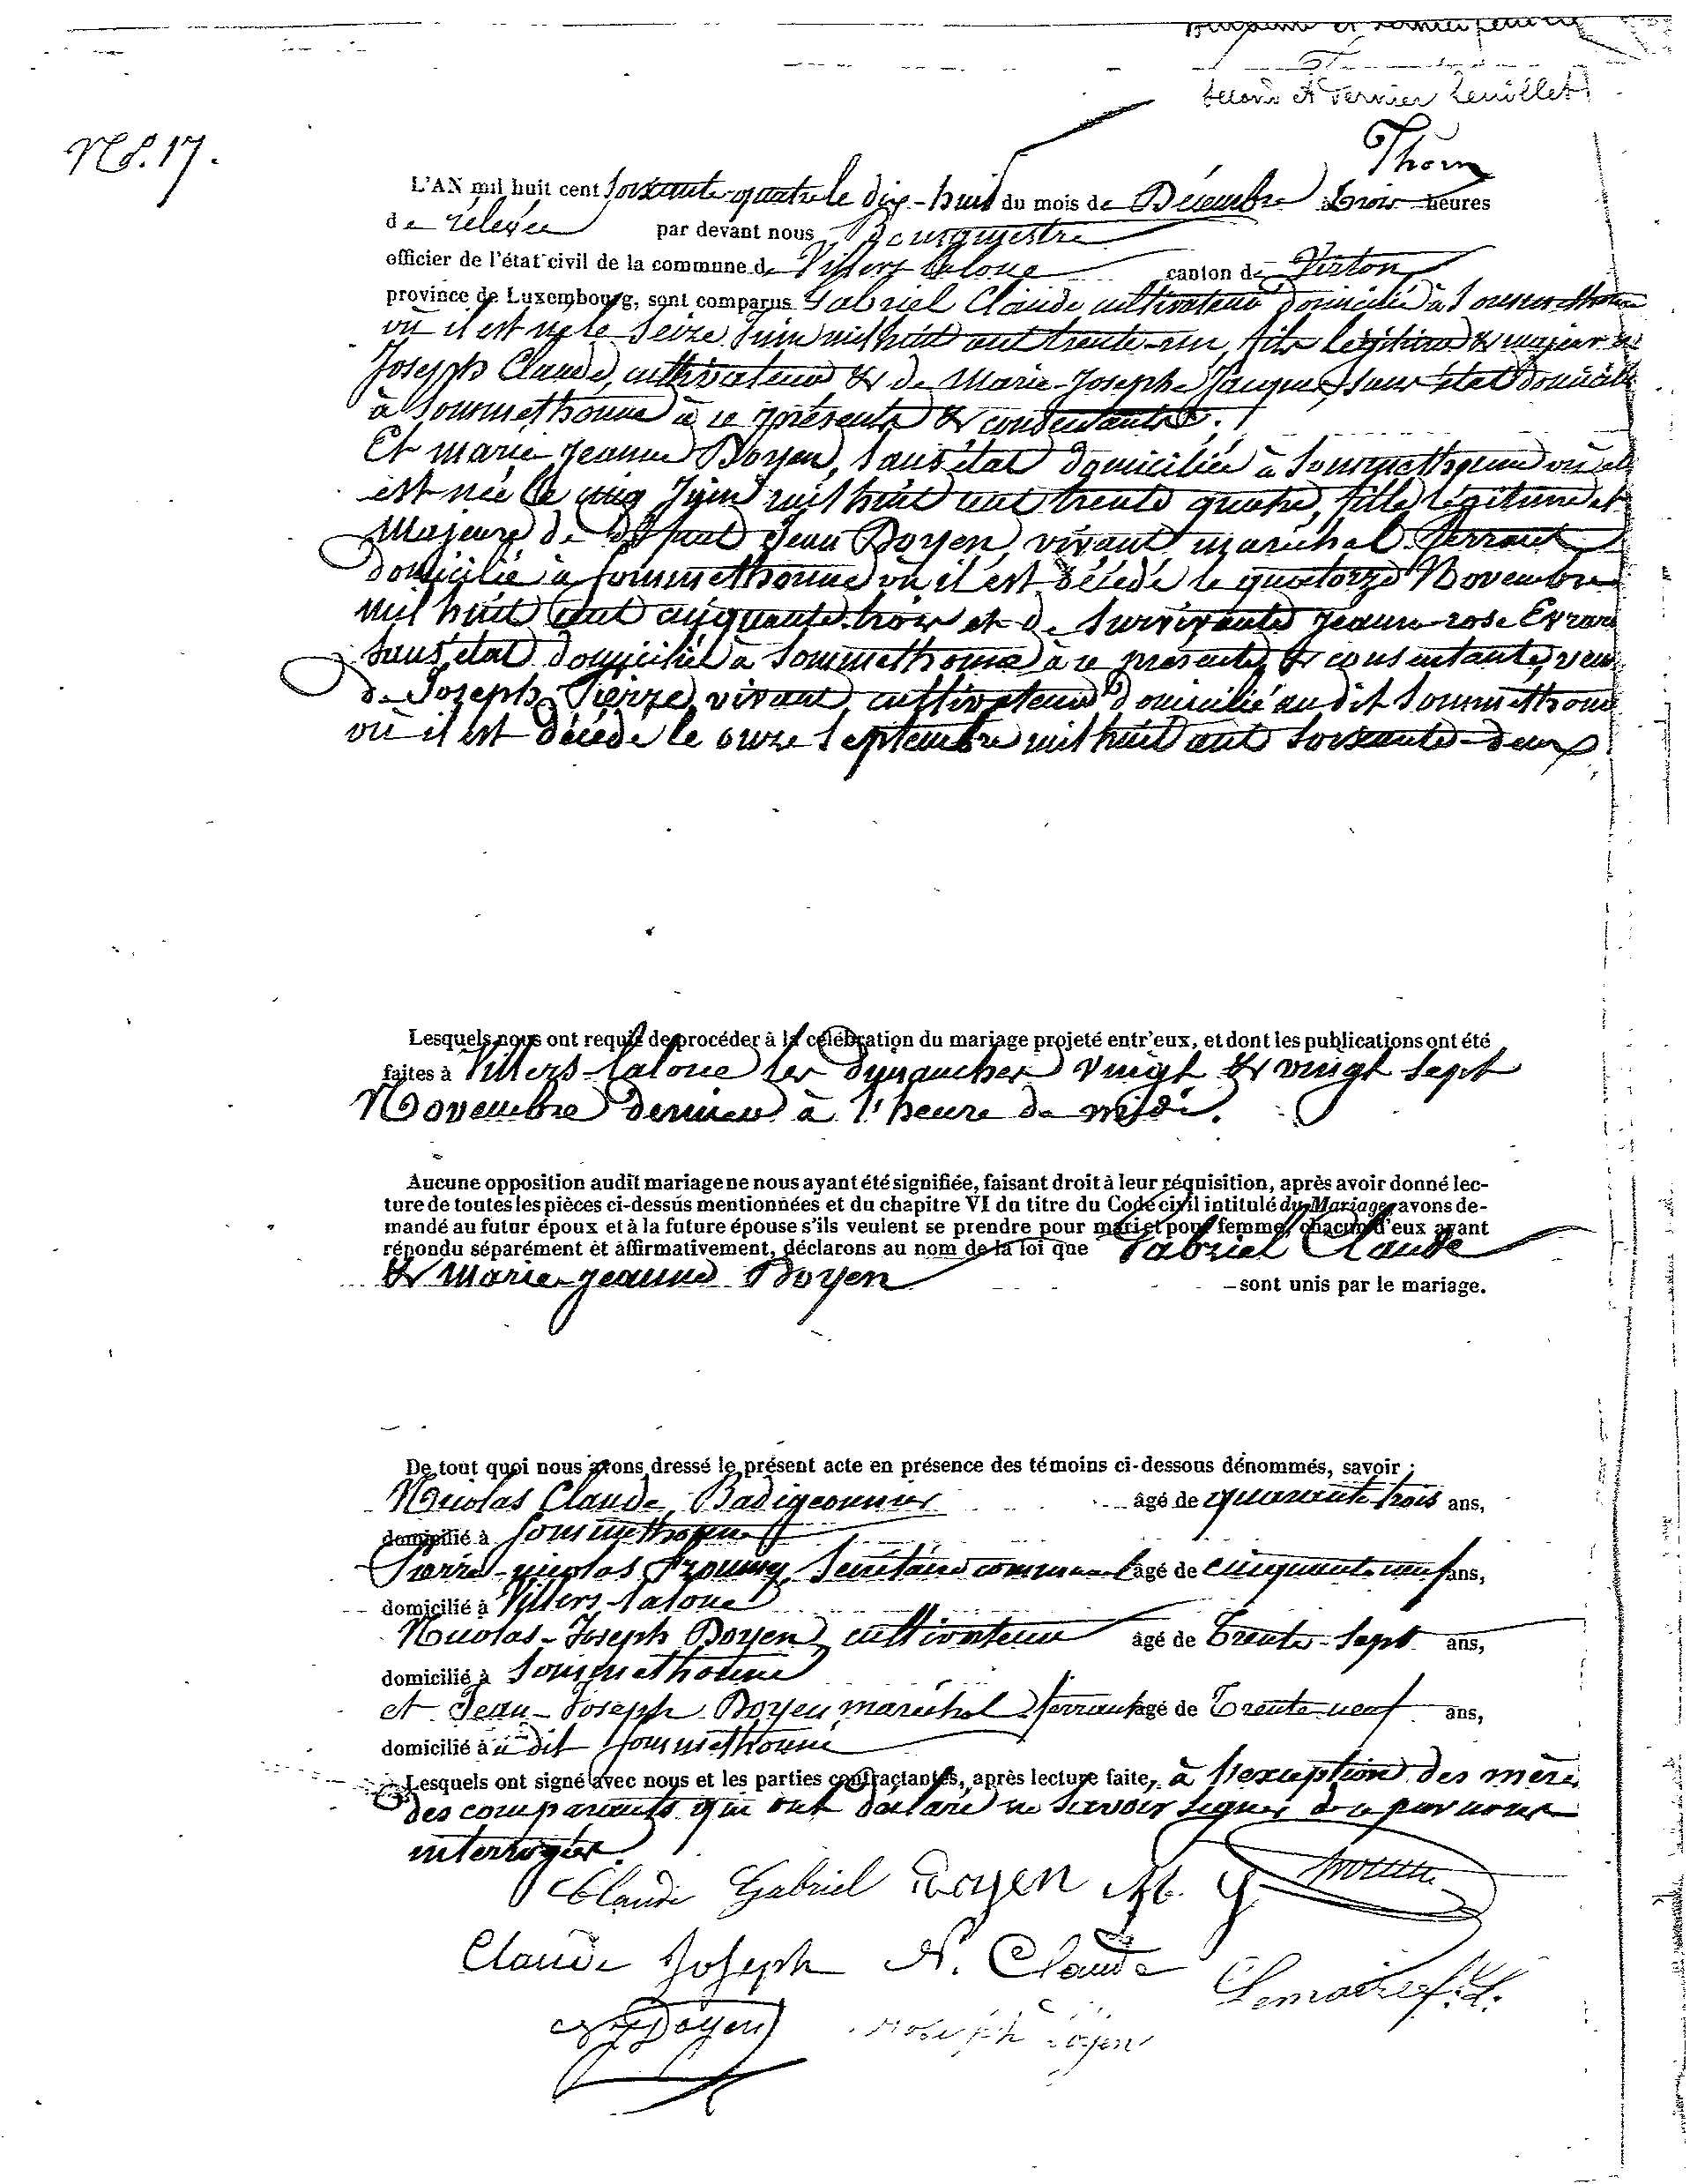 second et dernier feuillet
Thorn
No. 17.
L'AN mil huit cent soixante-quatre le dix-huit du mois de Décembre à trois heures
de rélevée par devant nous Bourgmestre
officier de l'état civil de la commune de Villers-laloue canton de Virton
province de Luxembourg, sont comparus Gabriel Claude cultivateur domicilié à Sommethonne
où il est né le seize Juin mil huit cent trente-un, fils légitime & majeur de
Joseph Claude, cultivateur & de Marie-Joseph Jacques, sans état domiciliés
à Sommethonne à ce présents & consentants.
Et marie-jeanne Doyen, sans état domiciliée à Sommethonne où elle
est née le cinq Juin mil huit cent trente quatre, fille légitime et
Majeure de défunt Jean Doyen, vivant maréchal ferrant
domicilié à sommethonne où il est décédé le quatorze Novembre
mil huit cent cinquante-trois et de survivante jeanne-rose Evrard
sans état domiciliée à Sommethonne à ce présente & consentante, veuve
de Joseph Pierre, vivant cultivateur domicilié au dit Sommethonne
où il est décédé le onze Septembre mil huit cent soixante-deux
Lesquels nous ont requis de procéder à la célébration du mariage projeté entr'eux, et dont les publications ont été
faites à Villers-laloue les dimanches vingt & vingt sept
Novembre dernier à l'heure de midi.
Aucune opposition audit mariage ne nous ayant été signifiée, faisant droit à leur réquisition, après avoir donné lec-
ture de toutes les pièces ci-dessus mentionnées et du chapitre VI du titre du Code civil intitulé du Mariage, avons de-
mandé au futur époux et à la future épouse s'ils veulent se prendre pour mari et pour femme, chacun d'eux ayant
répondu séparément et affirmativement, déclarons au nom de la loi que Gabriel Claude
& Marie-jeanne Doyen sont unis par le mariage.
De tout quoi nous avons dressé le présent acte en présence des témoins ci-dessous dénommés, savoir :
Nicolas Claude, Badigeonnier âgé de quarante-trois ans,
domicilié à Sommethonne
Pierre-nicolas secrétaire communal âgé de cinquante-neuf ans,
domicilié à Villers-laloue
Nicolas-Joseph Doyen cultivateur âgé de trente-sept ans,
domicilié à Sommethonne
et Jean-Joseph Doyen maréchal ferrant âgé de Trente-neuf ans,
domicilié à u dit sommethonne
Lesquels ont signé avec nous et les parties contractantes, après lecture faite, à l'exception des mères
des comparants qui ont déclaré ne savoir signer de ce par nous
interrogées.
Claude Gabriel Doyen M. J.
Claude Joseph N. Claude
Lemaire
Doyen Joseph Doyen